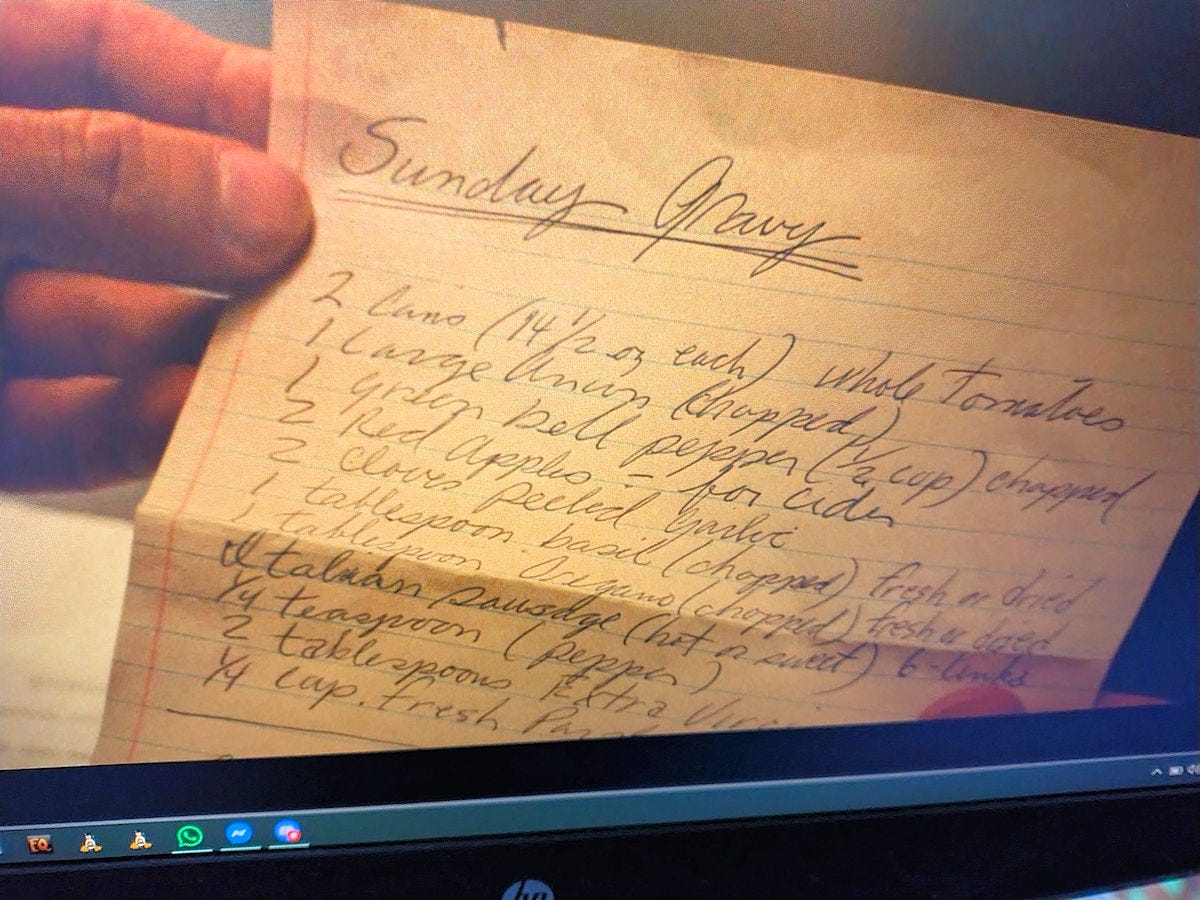 Sunday Gravy
2 Cans (14 1/2 oz each) whole Tomatoes
1 Large Onion (chopped)
1 green bell pepper (1/2 cup) chopped
2 Red Apples - for cider
2 cloves peeled garlic
1 tablespoon basil (chopped) fresh or dried
1 tablespoon Oregano (chopped) fresh or dried
Italian sausage (hot or sweet) 6-links
1/4 teaspoon (pepper)
2 tablespoons Extra
1/4 cup. Fresh
EQ
hp